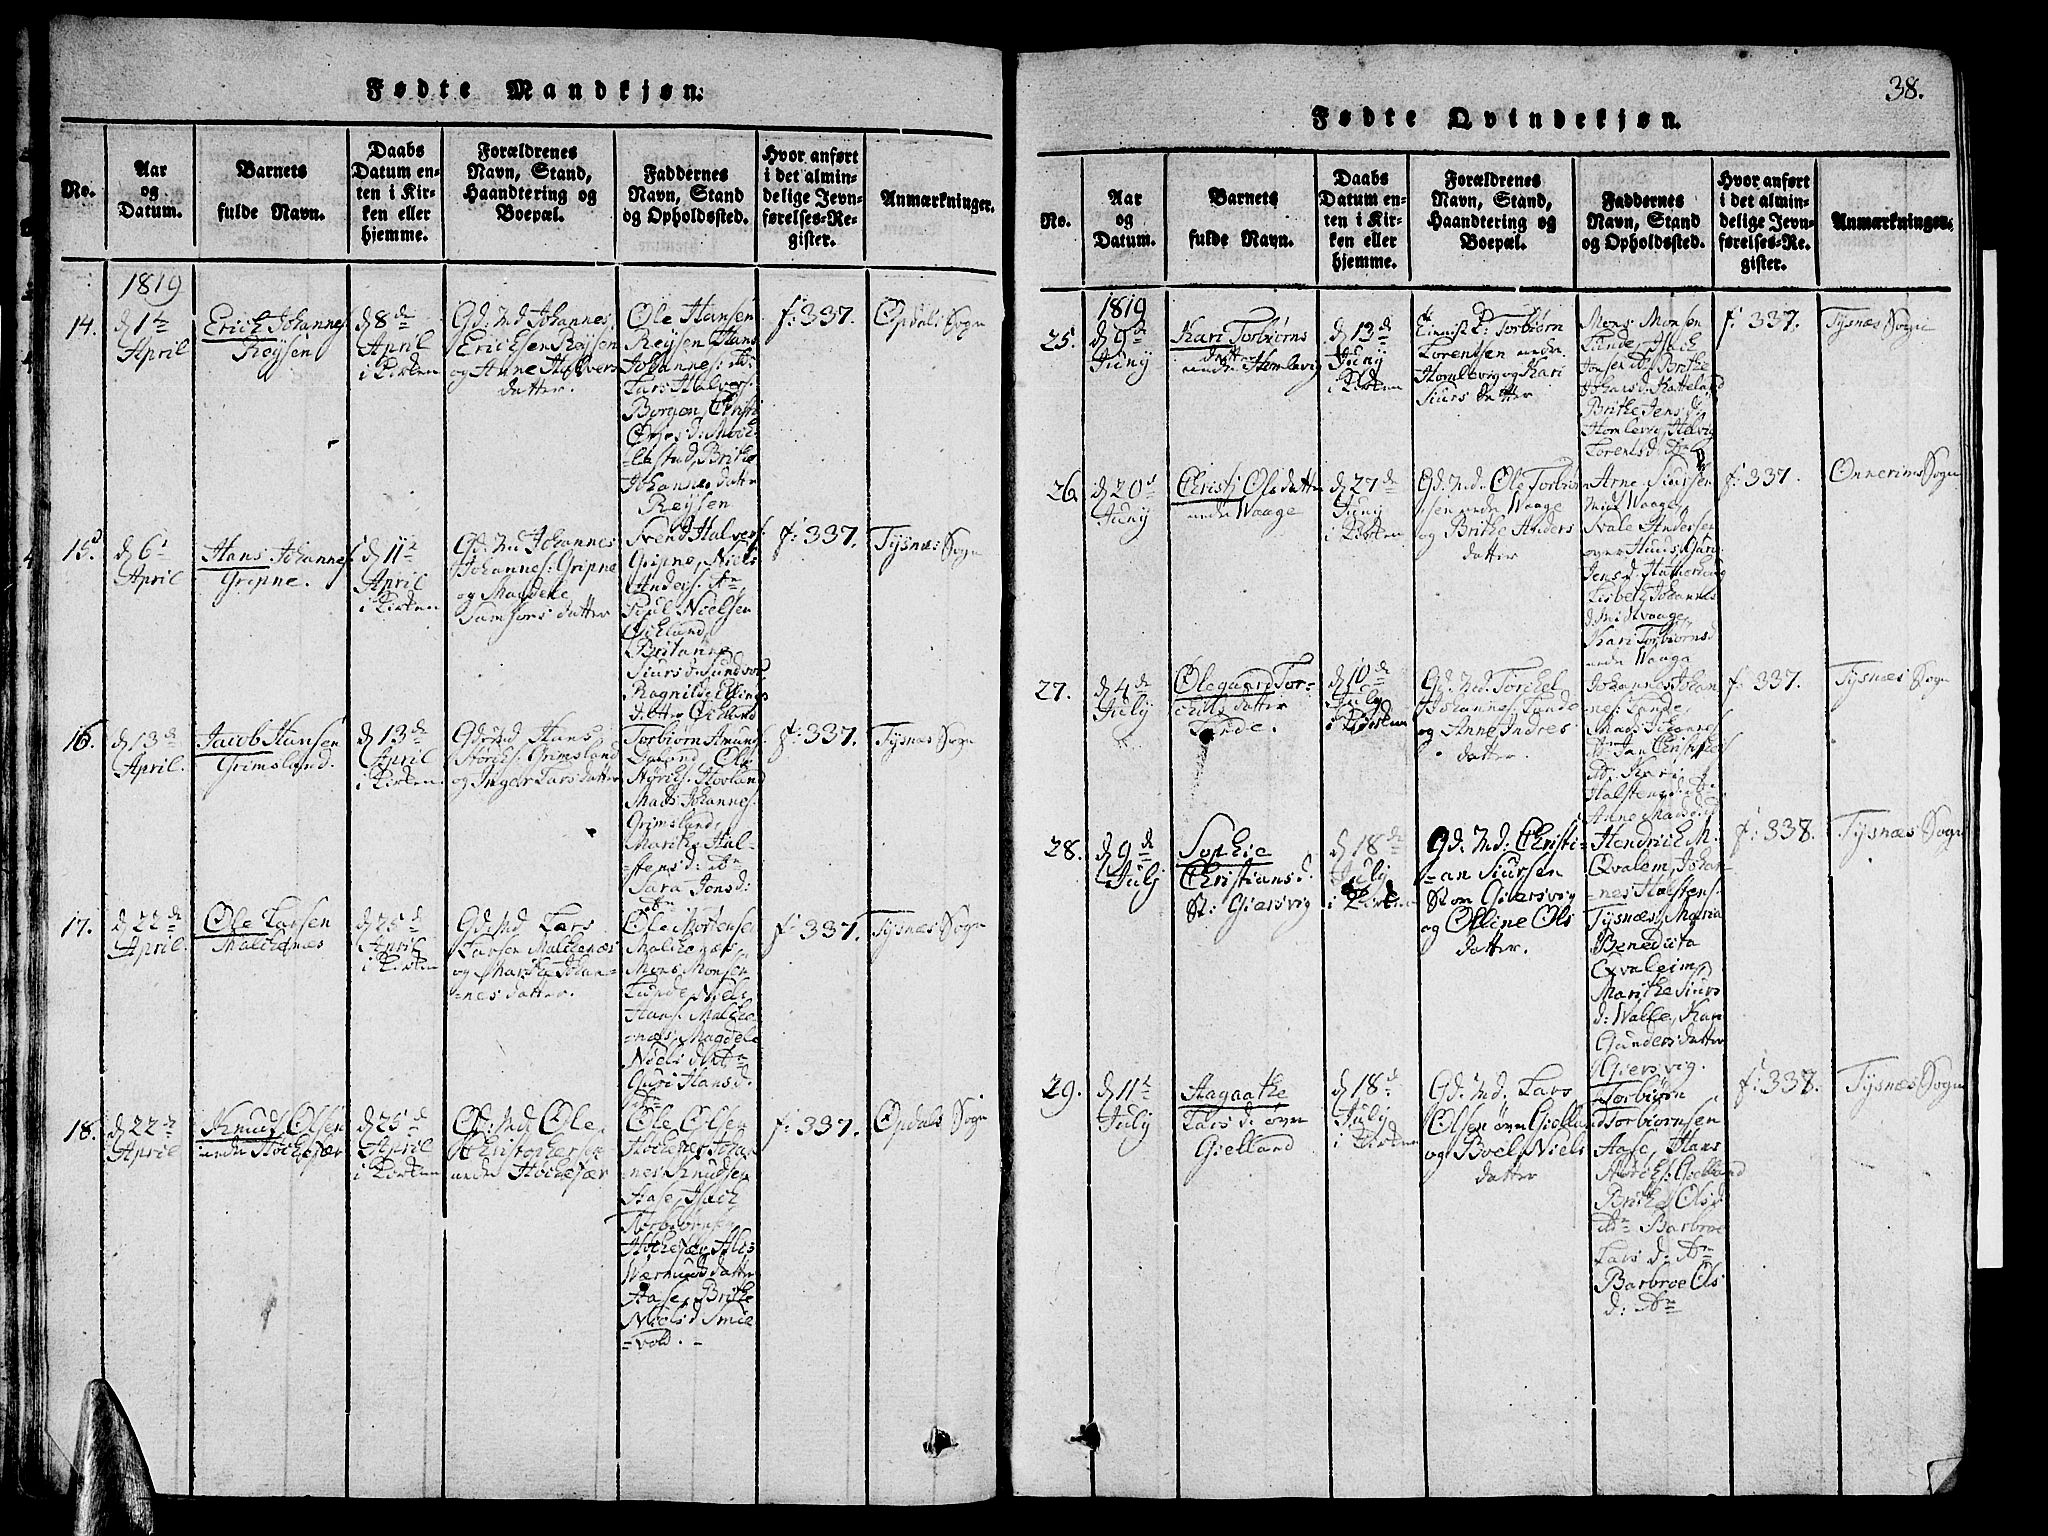 Fødte Mandkjøn.
No.
Aar
og
Datum.
Barnets
fulde Navn.
Daabs
Datum en-
ten i Kir-
ken eller
hjemme.
Forældrenes
Navn, Stand,
Haandtering og
Boepæl.
Faddernes
Navn, Stand
og Opholdssted.
Hvor anført
i det almin-
delige Jevn-
førelses-Re-
gister.
Anmærkninger.
1819
14.
d 1te
April
Erich Johannes
Røysen
d 8de
April
i Kirken
Gd: Md Johannes
Erichsen Røysen
og Anne Halvers
datter.
Ole Hansen
Røysen Hans
Johannes:
Lars Halvers:
Borgen, Christi
Brithe
Johannes datter
Røysen
f: 337.
Opdals Sogn
15.
d 6te
April
Hans Johannes
Gripne.
d 11te
April
i Kirken
Gd: Md Johannes
Johannes: Gripne
og Magdele
Samsons datter
Svend Halvers
Gripne, Niels
Anders:
Poul Nielsen
Siurs d: Sundvor
Ragnilde Ellings
datter
f: 337.
Tysnæs Sogn
16.
d 13de
April.
Jacob Hansen
Grimsland.
d 13de
April
i Kirken
Gd: Md Hans
Størchs: Grimsland
og Inger Lars datter
Torbiørn Amunds
Dalland, Ole
Hovland
Mads Johannes:
Grimsland,
Marithe Hal-
=stens d:
Sara Jons d:
f: 337.
Tysnæs Sogn
17.
d 22de
April.
Ole Larsen
Malchenæs
d 25de
April
i Kirken
Gd: Md Lars
Larsen Malchenæs
og Marithe Johan-
=nes datter.
Ole Mortensen
Malchenæs,
Mons Monsen
Lunde, Niels
Hans: Malche
=næs, Magdele
Niels d:
Guri Hans d:
f: 337.
Tysnæs Sogn
18.
d 22de
April
Knud Olsen
nedre Hochesær
d 25de
April
i Kirken
Gd: Md Ole
Christophersen
nedre Hochesær
Ole Olsen
Hochesær Johan
nes Knudsen
Aase, Isach
Torbiørnsen
Hochesær, Alis
Værmunds datter
Aase, Brithe
Niels d Smie
=vold. -
f: 337.
Opdals Sogn
38.
Fødte Qvindekjøn.
No.
Aar
og
Datum.
Barnets
fulde Navn.
Daabs
Datum en-
ten i Kir-
ken eller
hjemme.
Forældrenes
Navn, Stand,
Haandtering og
Boepæl.
Faddernes
Navn, Stand
og Opholdssted.
Hvor anført
i det almin-
delige Jevn-
førelses-Re-
gister.
Anmærkninger.
1819
25.
d 9de
Juny
Kari Torbiørns
datter
nedre Homlevig
d 13de
Juny
i Kirken
Torbiørn
Lorentsen nedre
Homlevig og Kari
Siurs datter
Mons: Monsen
Lunde, Isach
Jonsen Brithe
Johans d: Katteland
Brithe Jens d:
Homlevig, Helvig
Lorents d:
f: 337.
Tysnæs Sogn
26.
d 20de
Juny
Christj Ols datter
nedre Waage
d 27de
Juny
i Kirken
Gd: Md: Ole Torbiørn
=sen nedre Waage
og Brithe Anders
datter
Arne Siursen
Mid Waage,
Svale Andersen
over Huus, Guri
Jens d:
Lisbeth Johannes
d: Midwaage,
Kari Torbiørns d
nedre Waage
f: 337.
Onnerims Sogn
27.
d 4de
July
Olegaard Tor-
chils datter
Lunde.
d 10de
July
i Kirken
Gd: Md: Torchel
Johannes: Lunde
og Anne Andres
datter.
Johannes Johan
nes: Lunde,
Mads Johannes
Jan Christophers
Kari
Halstens d:
Anne Mads d:
f: 337.
Tysnæs Sogn
28.
d 9de
July
Sophie
Christians d:
St: Giersvig
d 18de
July
i Kirken
Gd: Md: Christi-
=an Siursen
Stom Giersvig
og Olline Ols
datter.
Hendrich M.
Qvalem, Johan-
=nes Halstens:
Tysnæs, Maria
Benedicta
Qvaleim,
Marithe Siurs
d: Walle, Kari
Gunders datter
Giersvig.
f: 338.
Tysnæs Sogn
29.
d 11te
July
Aagaathe
Lars d: øvre
Gielland
d 18de
July
i Kirken
Gd: Md: Lars
Olsen øvre Gielland
og Boel Niels
datter
Torbiørn
Torbiørnsen
Aase, Hans
Gielland
Brithe Ols d:
Do Barbroe
Lars d: Do
Barbroe Ols
d: Do
f: 338.
Tysnæs Sogn